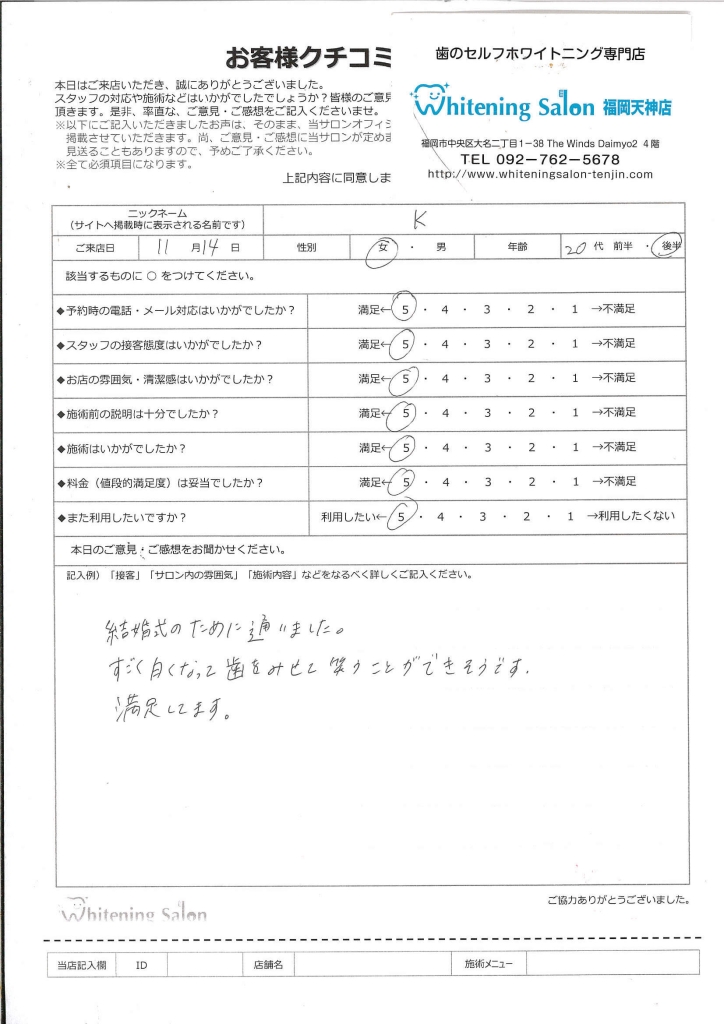 お客様クチコミ
歯のセルフホワイトニング専門店
Whitening Salon 福岡天神店
福岡市中央区大名二丁目1-38 The Winds Daimyo2 4階
TEL 092-762-5678
http://www.whiteningsalon-tenjin.com/
本日はご来店いただき、誠にありがとうございました。
スタッフの対応や施術などはいかがでしたでしょうか？皆様のご意見
頂きます。是非、率直な、ご意見・ご感想をご記入くださいませ。
※以下にご記入いただきましたお声は、そのまま、当サロンオフィシ
掲載させていただきます。尚、ご意見・ご感想に当サロンが定めま
見送ることもありますので、予めご了承ください。
※全て必須項目になります。
上記内容に同意しま
ニックネーム
（サイトへ掲載時に表示される名前です） K
ご来店日 11 月 14 日 性別 女 ・ 男 年齢 20 代 前半 ・ 後半
該当するものに ○ をつけてください。
◆予約時の電話・メール対応はいかがでしたか？ 満足← 5 ・ 4 ・ 3 ・ 2 ・ 1 →不満足
◆スタッフの接客態度はいかがでしたか？ 満足← 5 ・ 4 ・ 3 ・ 2 ・ 1 →不満足
◆お店の雰囲気・清潔感はいかがでしたか？ 満足← 5 ・ 4 ・ 3 ・ 2 ・ 1 →不満足
◆施術前の説明は十分でしたか？ 満足← 5 ・ 4 ・ 3 ・ 2 ・ 1 →不満足
◆施術はいかがでしたか？ 満足← 5 ・ 4 ・ 3 ・ 2 ・ 1 →不満足
◆料金（値段的満足度）は妥当でしたか？ 満足← 5 ・ 4 ・ 3 ・ 2 ・ 1 →不満足
◆また利用したいですか？ 利用したい← 5 ・ 4 ・ 3 ・ 2 ・ 1 →利用したくない
本日のご意見・ご感想をお聞かせください。
記入例）「接客」「サロン内の雰囲気」「施術内容」などをなるべく詳しくご記入ください。
結婚式のために通いました。
すごく白くなって歯をみせて笑うことができそうです.
満足してます。
ご協力ありがとうございました。
Whitening Salon
当店記入欄 ID 店舗名 施術メニュー